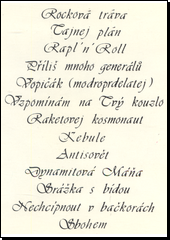 Rocková tráva
Tajnej plán
Rapl´n´Roll
Příliš mnoho generálů
Vopičák (modroprdelatej)
Vzpomínám na Tvý kouzlo
Raketovej kosmonaut
Kebule
Antisovět
Dynamitová Máňa
Srážka s bídou
Nechcípnout v bačkorách
Sbohem